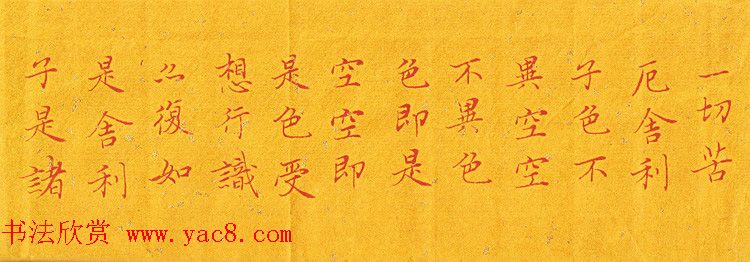 一切苦
厄舍利
子色不
異空空
不異色
色即是
空空即
是色受
想行識
亦復如
是舍利
子是諸
书法欣赏 www.yac8.com